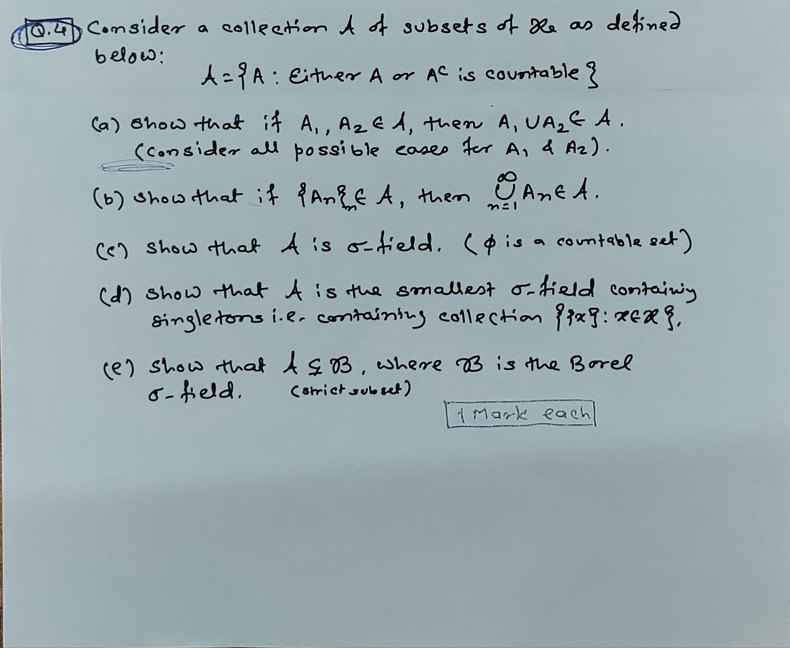 Q.4 Consider a collection A of subsets of as defined
below:
A = {A : Either A or Aᶜ is countable}
(a) Show that if A₁, A₂ ∈ A, then A₁ ∪ A₂ ∈ A.
(Consider all possible cases for A₁ & A₂).
(b) Show that if {An}ₙ ∈ A, then ∞ ∪ n=1 An ∈ A.
(c) Show that A is σ-field. (φ is a countable set)
(d) Show that A is the smallest σ-field containing
singletons i.e. containing collection {{x} : x ∈ X}.
(e) Show that A ⊊ B, where B is the Borel
σ-field. (strict subset)
1 Mark each